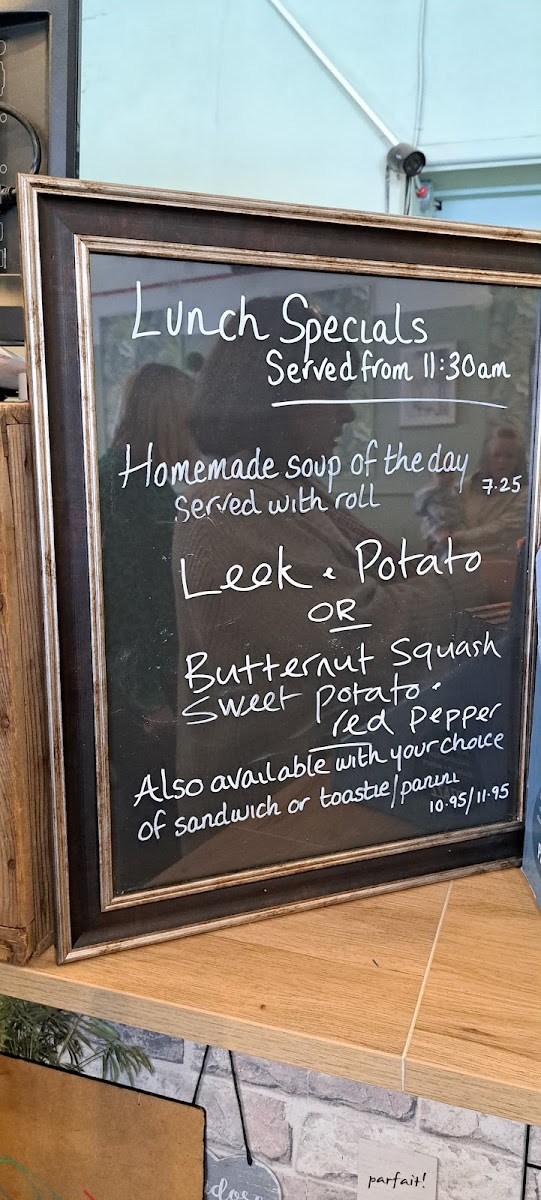 Lunch Specials
Served from 11:30am
Homemade soup of the day
served with roll 7.25
Leek & Potato
OR
Butternut Squash
Sweet Potato &
red Pepper
Also available with your choice
of sandwich or toastie/panini
10.95/11.95
parfait!